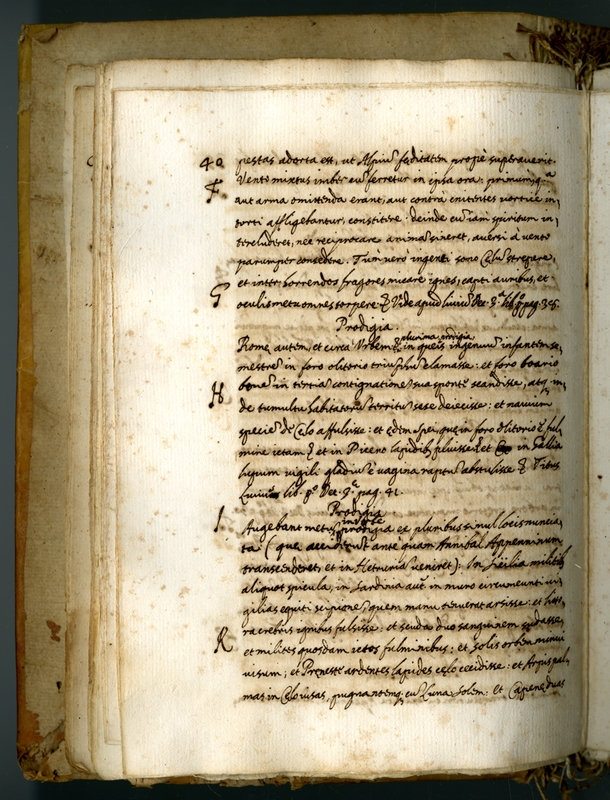 40 pestas adorta est, ut Alpiũ fęditatem propè superaverit.
F Vento mixtus imber cũ ferretur in ipsa ora: primumq; a
aut arma omittenda erant, aut contrà enitentes vortice in,
torti affligebantur, constitere: deinde cũ iam spiritum in,
tercluderet, nec reciprocare animã sineret, aversi à vento
parumper consedere. Tum vero ingenti sono Cęlũ strepere,
et inter horrendos fragores micare ignes, capti auribus, et
G oculis metu omnes torpere & Vide apud Liviũ Dec. 3.ª lib. pº pag. 38.
Prodigia.
Romę autem, et circa Urbem plurima prodigia in queis ingenuũ infantem se,
mestrẽ in foro olitorio triumphũ clamasse: et foro boario
H bovẽ in tertiã contignationẽ sua spontè scandisse, atq; in,
de tumultu habitatorũ territũ sese deiecisse: et navium
speciẽ de Cęlo affulsisse: et ędem Spei, quę in foro olitorio ful
mine ictam & et in Piceno lapidib. pluisse & et in Gallia
lupum vigili gladiũ è vagina raptũ abstulisse & Titus
Livius lib. pº Dec. 3.ª pag. 41.
Prodigia
I Augebant metũ prodigia ex pluribus simul locis nuncia,
ta ( quę ante quam Annibal Appenninum
transcenderet, et in Hetruria veniret): In Sicilia militib.
aliquot spicula, in Sardinia aut in muro circumeunti vi
gilias equiti scipionẽ, quem manu tenuerat arsisse: et litto
ra crebris ignibus fulsisse: et scuda duo sanguinem sudasse,
K et milites quosdam ictos fulminibus: et solis orbem minui
visum; et Pręneste ardentes lapides cęlo cecidisse: et Arpis pal,
mas in Cęlo visas, pugnantemq; cũ Luna Solem: et Capenę duas